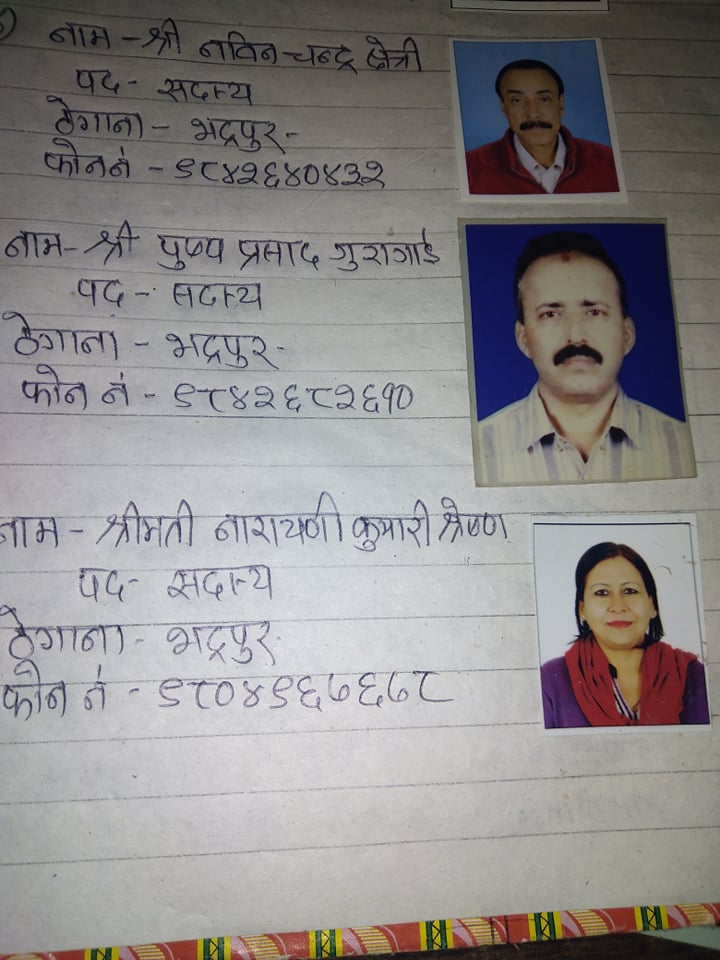 नाम - श्री नविन चन्द्र क्षेत्री
पद - सदस्य
ठेगाना - भद्रपुर -
फोन नं - ९८४२६४०४३२
नाम - श्री पुण्य प्रसाद गुरागाई
पद - सदस्य
ठेगाना - भद्रपुर -
फोन नं - ९८४२६८२६१०
नाम - श्रीमती नारायणी कुमारी श्रेष्ण
पद - सदस्य
ठेगाना - भद्रपुर
फोन नं - ९८०४९६७६७८